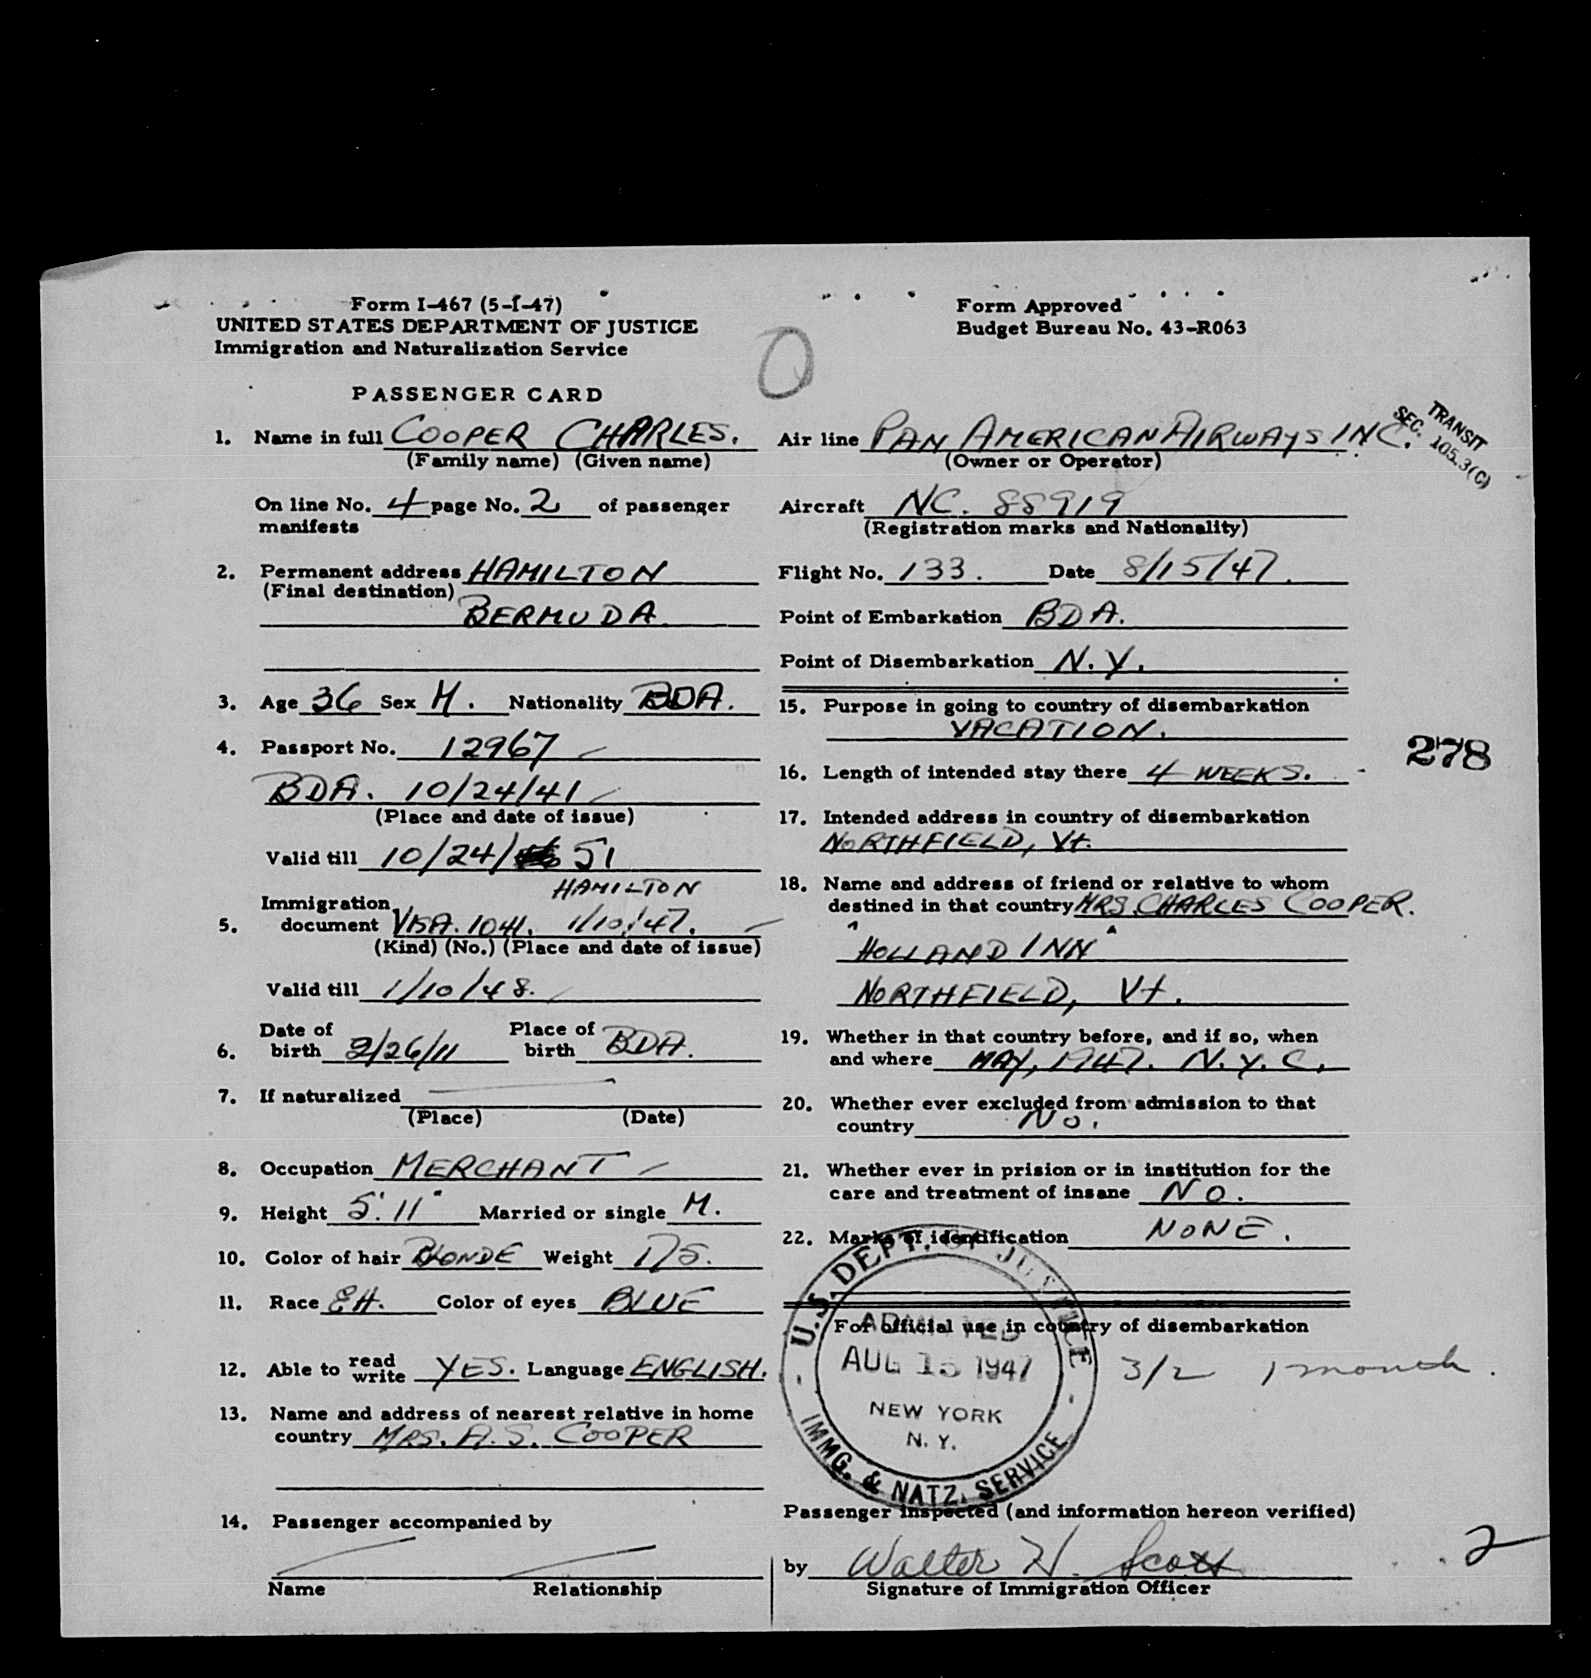 Form I-467 (5-1-47)
UNITED STATES DEPARTMENT OF JUSTICE
Immigration and Naturalization Service
PASSENGER CARD
1. Name in full COOPER CHARLES.
(Family name) (Given name)
On line No. 4 page No. 2 of passenger
manifests
2. Permanent address HAMILTON
(Final destination)
BERMUDA
3. Age 36 Sex M. Nationality BDA.
4. Passport No. 12967
BDA. 10/24/41
(Place and date of issue)
Valid till 10/24/ 51
HAMILTON
Immigration
5. document VISA. 1041. 1/10/47.
(Kind) (No.) (Place and date of issue)
Valid till 1/10/48.
Date of Place of
6. birth 2/26/11 birth BDA.
7. If naturalized
(Place) (Date)
8. Occupation MERCHANT
9. Height 5'.11" Married or single M.
10. Color of hair BLONDE Weight 175.
11. Race EH. Color of eyes BLUE
12. Able to read write YES. Language ENGLISH.
13. Name and address of nearest relative in home
country MRS. A.S. COOPER
14. Passenger accompanied by
Name Relationship
Form Approved
Budget Bureau No. 43-R063
0
Air line PAN AMERICAN AIRWAYS INC.
(Owner or Operator)
TRANSIT
SEC. 105.3(C)
Aircraft NC. 88919
(Registration marks and Nationality)
Flight No. 133. Date 8/15/47.
Point of Embarkation BDA.
Point of Disembarkation N.Y.
15. Purpose in going to country of disembarkation
VACATION.
278
16. Length of intended stay there 4 WEEKS.
17. Intended address in country of disembarkation
NORTHFIELD, Vt.
18. Name and address of friend or relative to whom
destined in that country MRS. CHARLES COOPER.
"HOLLAND INN"
NORTHFIELD, Vt.
19. Whether in that country before, and if so, when
and where MAY, 1947. N.Y.C.
20. Whether ever excluded from admission to that
country No.
21. Whether ever in prision or in institution for the
care and treatment of insane NO.
22. Marks of identification NONE.
For official use in country of disembarkation
U.S. DEPT. OF JUSTICE
ADMITTED
AUG 15 1947
NEW YORK
N. Y.
IMMG. & NATZ. SERVICE
3/2 1 month.
Passenger inspected (and information hereon verified)
by Walter H. Scott
Signature of Immigration Officer
2